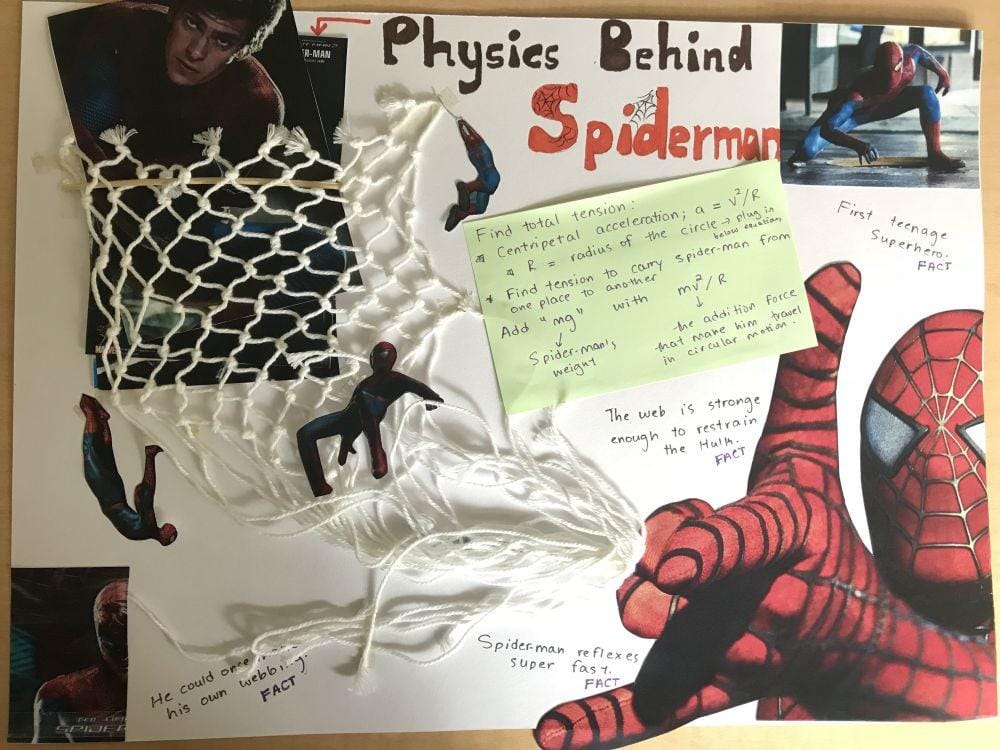 Physics Behind
Spiderman
R-MAN
Find total tension:
Centripetal acceleration; a = v²/R
R = radius of the circle → plug in
below equation
* Find tension to carry spider-man from
one place to another
Add "mg" with mv²/R
↓ ↓
Spider-man's
weight
the addition force
that make him travel
in circular motion.
First teenage
Superhero.
FACT
The web is stronge
enough to restrain
the Hulk.
FACT
Spider-man reflexes
super fast.
FACT
He could once
his own webbing.
FACT
SPIDER